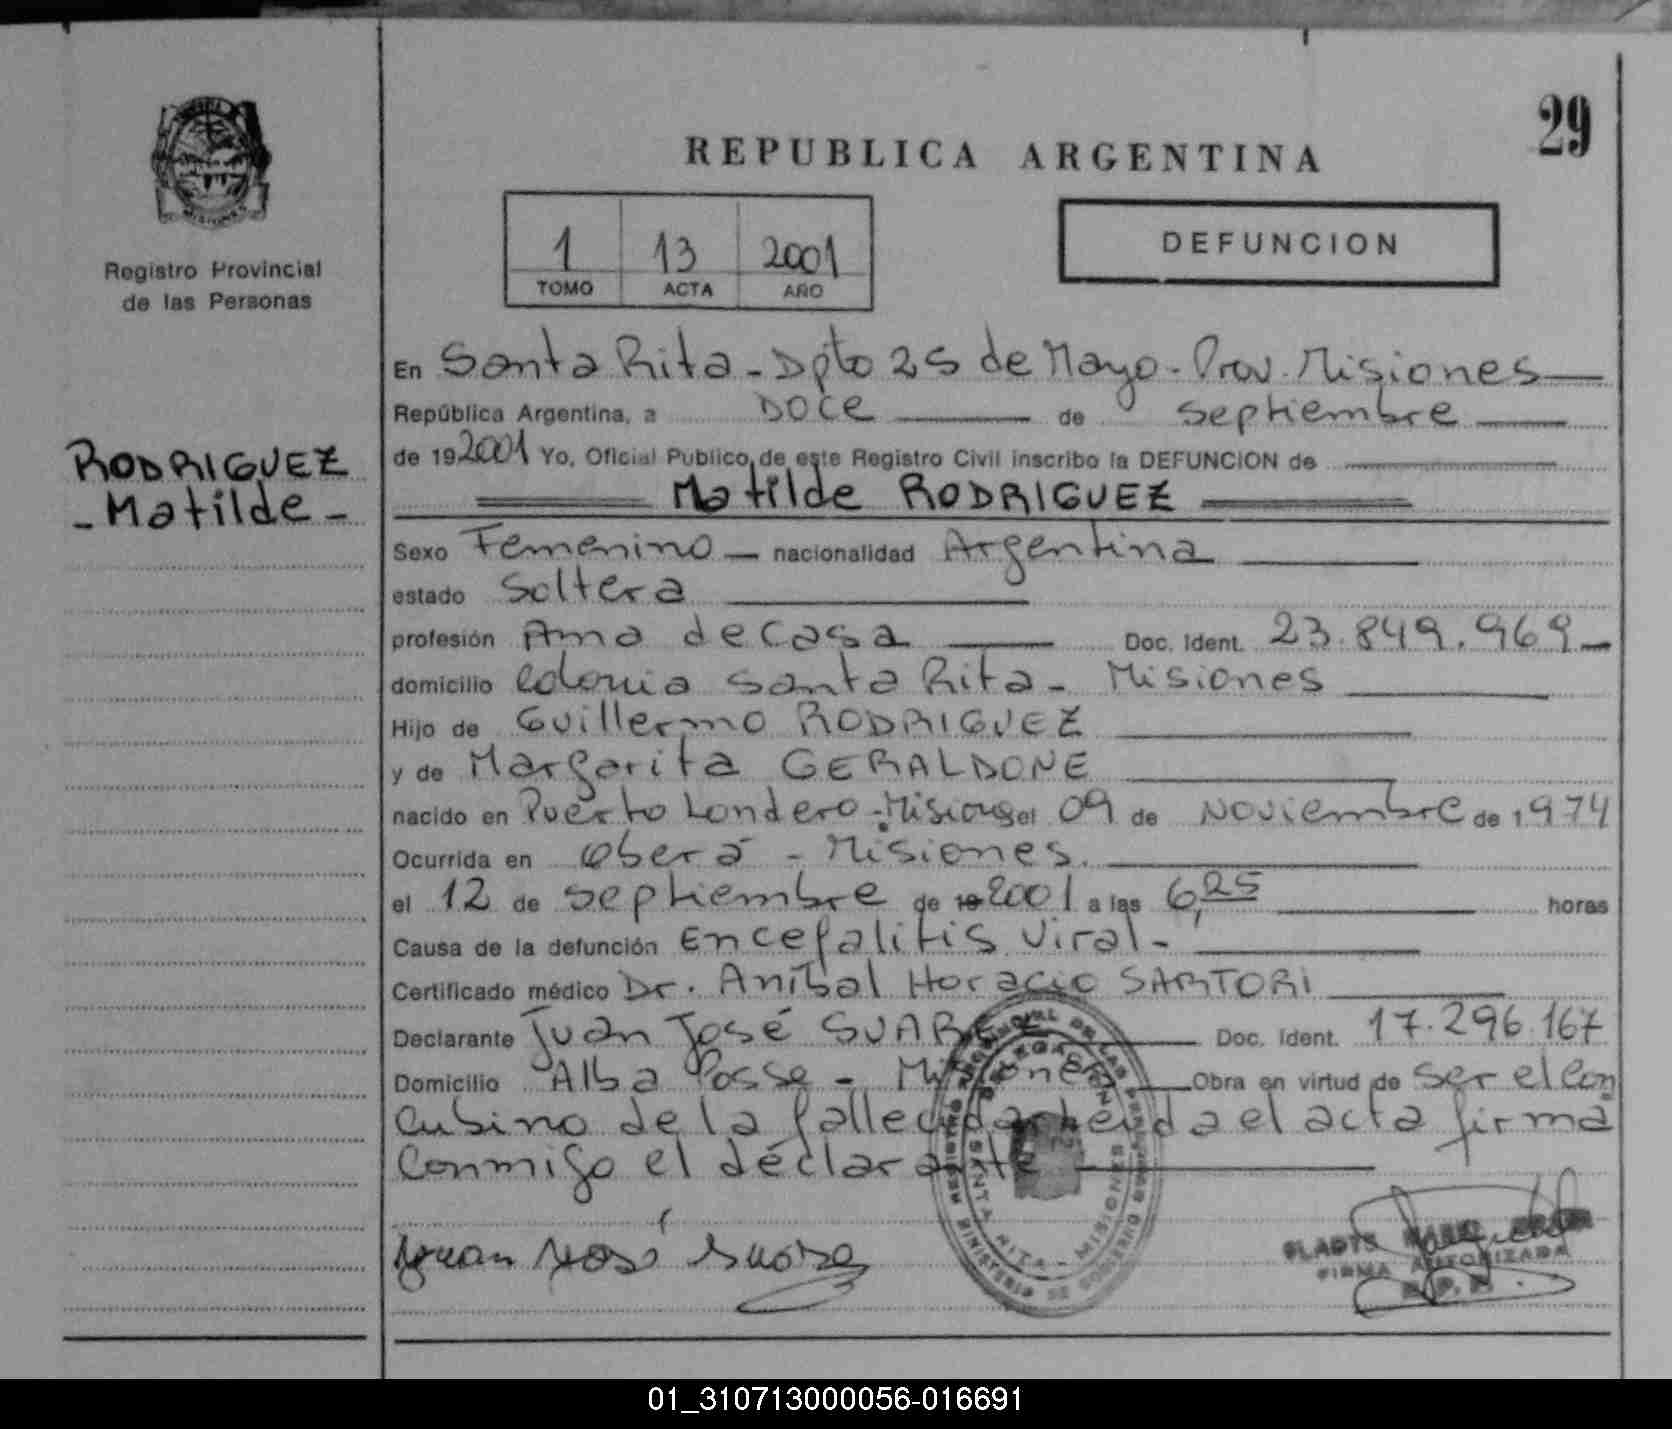 29
REPUBLICA ARGENTINA
MISIONES
Registro Provincial
de las Personas
1 13 2001
TOMO ACTA AÑO
DEFUNCION
RODRIGUEZ
- Matilde -
En Santa Rita - Dpto 25 de Mayo - Prov. Misiones
República Argentina, a Doce de Septiembre
de 192001 Yo, Oficial Publico, de este Registro Civil inscribo la DEFUNCION de
Matilde RODRIGUEZ
Sexo Femenino nacionalidad Argentina
estado Soltera
profesión Ama de Casa Doc. Ident. 23.849.969
domicilio Colonia Santa Rita - Misiones
Hijo de Guillermo RODRIGUEZ
y de Margarita GERALDONE
nacido en Puerto Londero - Misiones el 09 de Noviembre de 1974
Ocurrida en Oberá - Misiones.
el 12 de Septiembre de 19 2001 a las 6,25 horas
Causa de la defunción Encefalitis Viral -
Certificado médico Dr. Aníbal Horacio SARTORI
Declarante Juan José SUAREZ Doc. Ident. 17.296.167
Domicilio Alba Posse - Misiones Obra en virtud de Ser el Con
Cubino de la fallecida leida el acta firma
Conmigo el déclarante
REGISTRO PROVINCIAL DE LAS PERSONAS
DELEGACION
SANTA RITA - MISIONES
MINISTERIO DE GOBIERNO
Juan José Suarez
GLADYS
FIRMA AUTORIZADA
R. P. P.
01_310713000056-016691